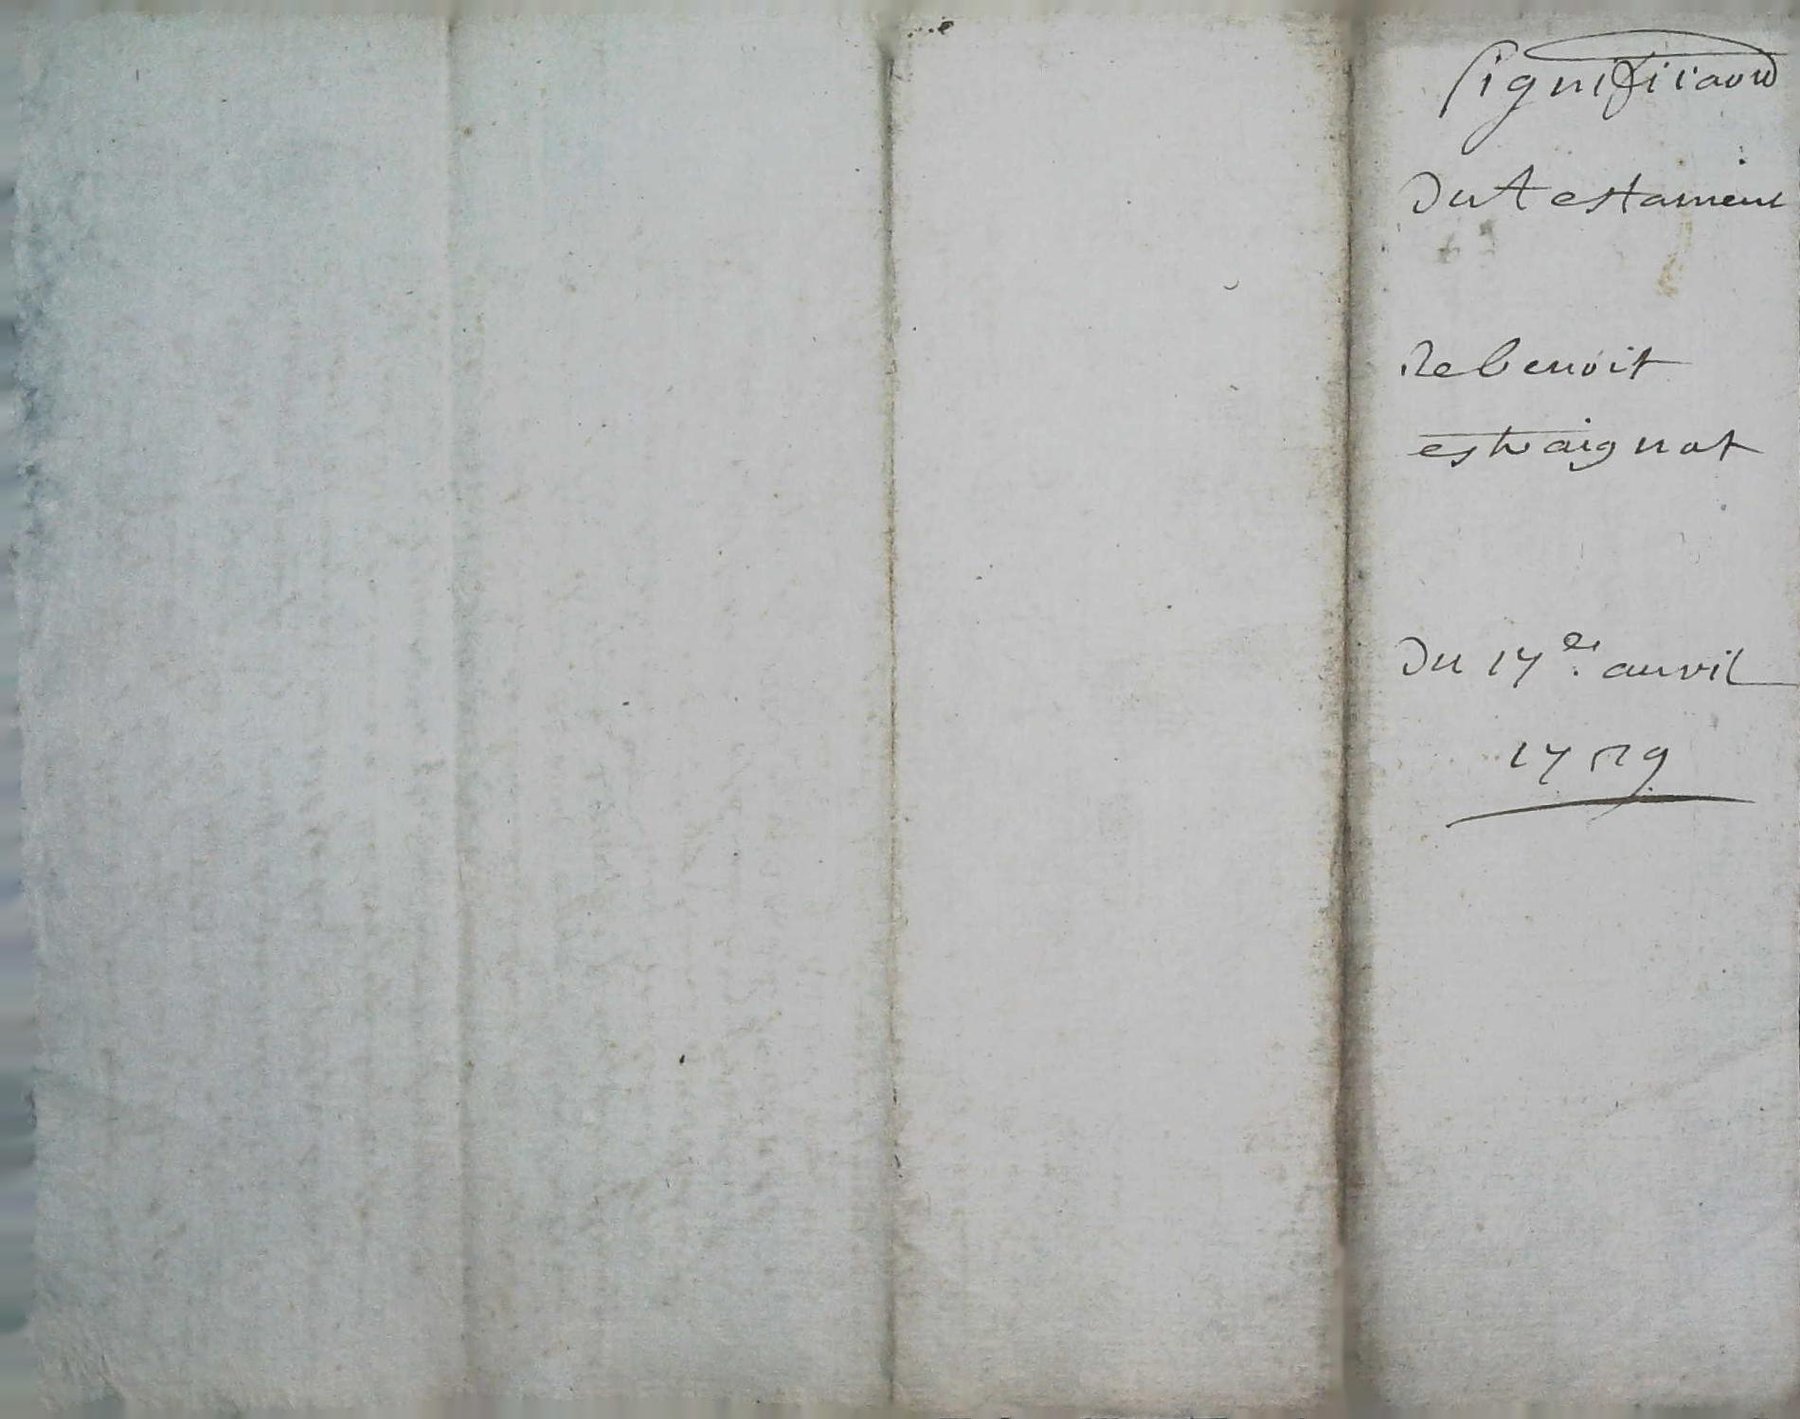 Signifiiaon
Du testament
De benoit
estraignat
Du 17e. auvril
1759